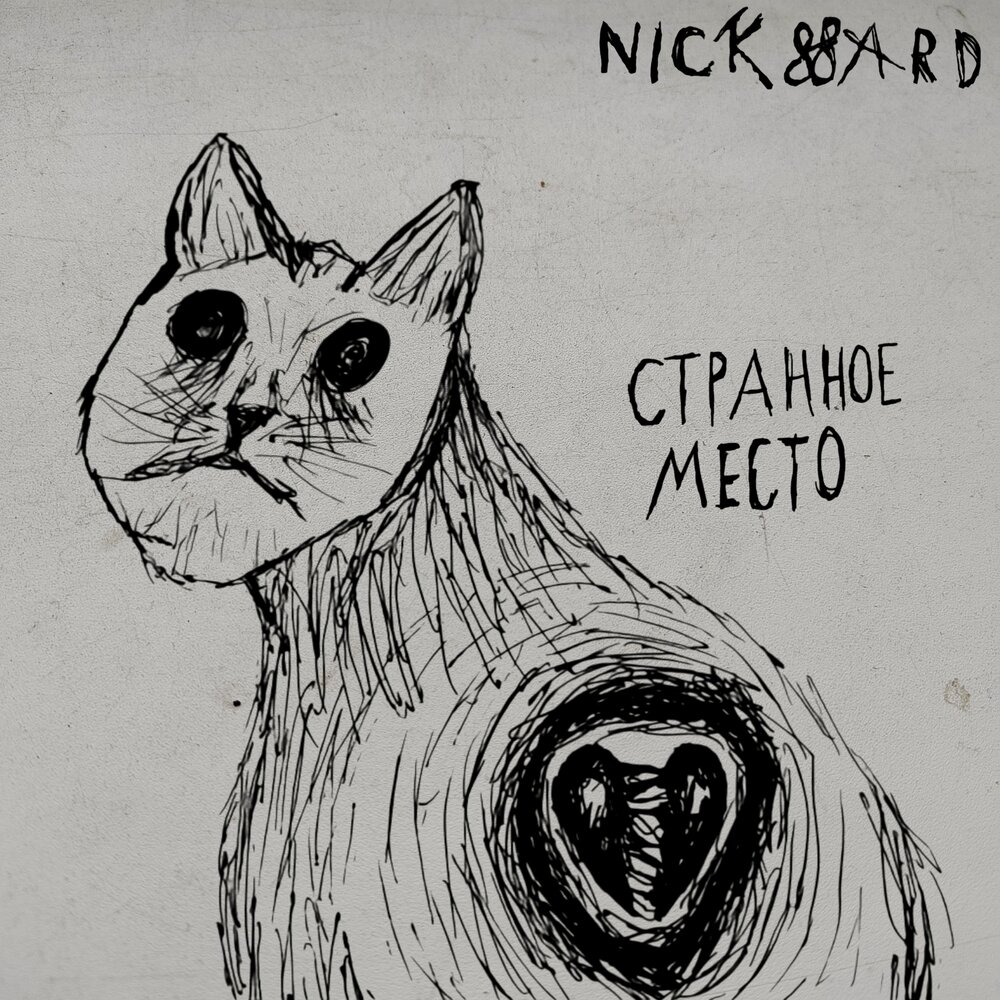 NICK&&ARD
СТРАННОЕ
МЕСТО